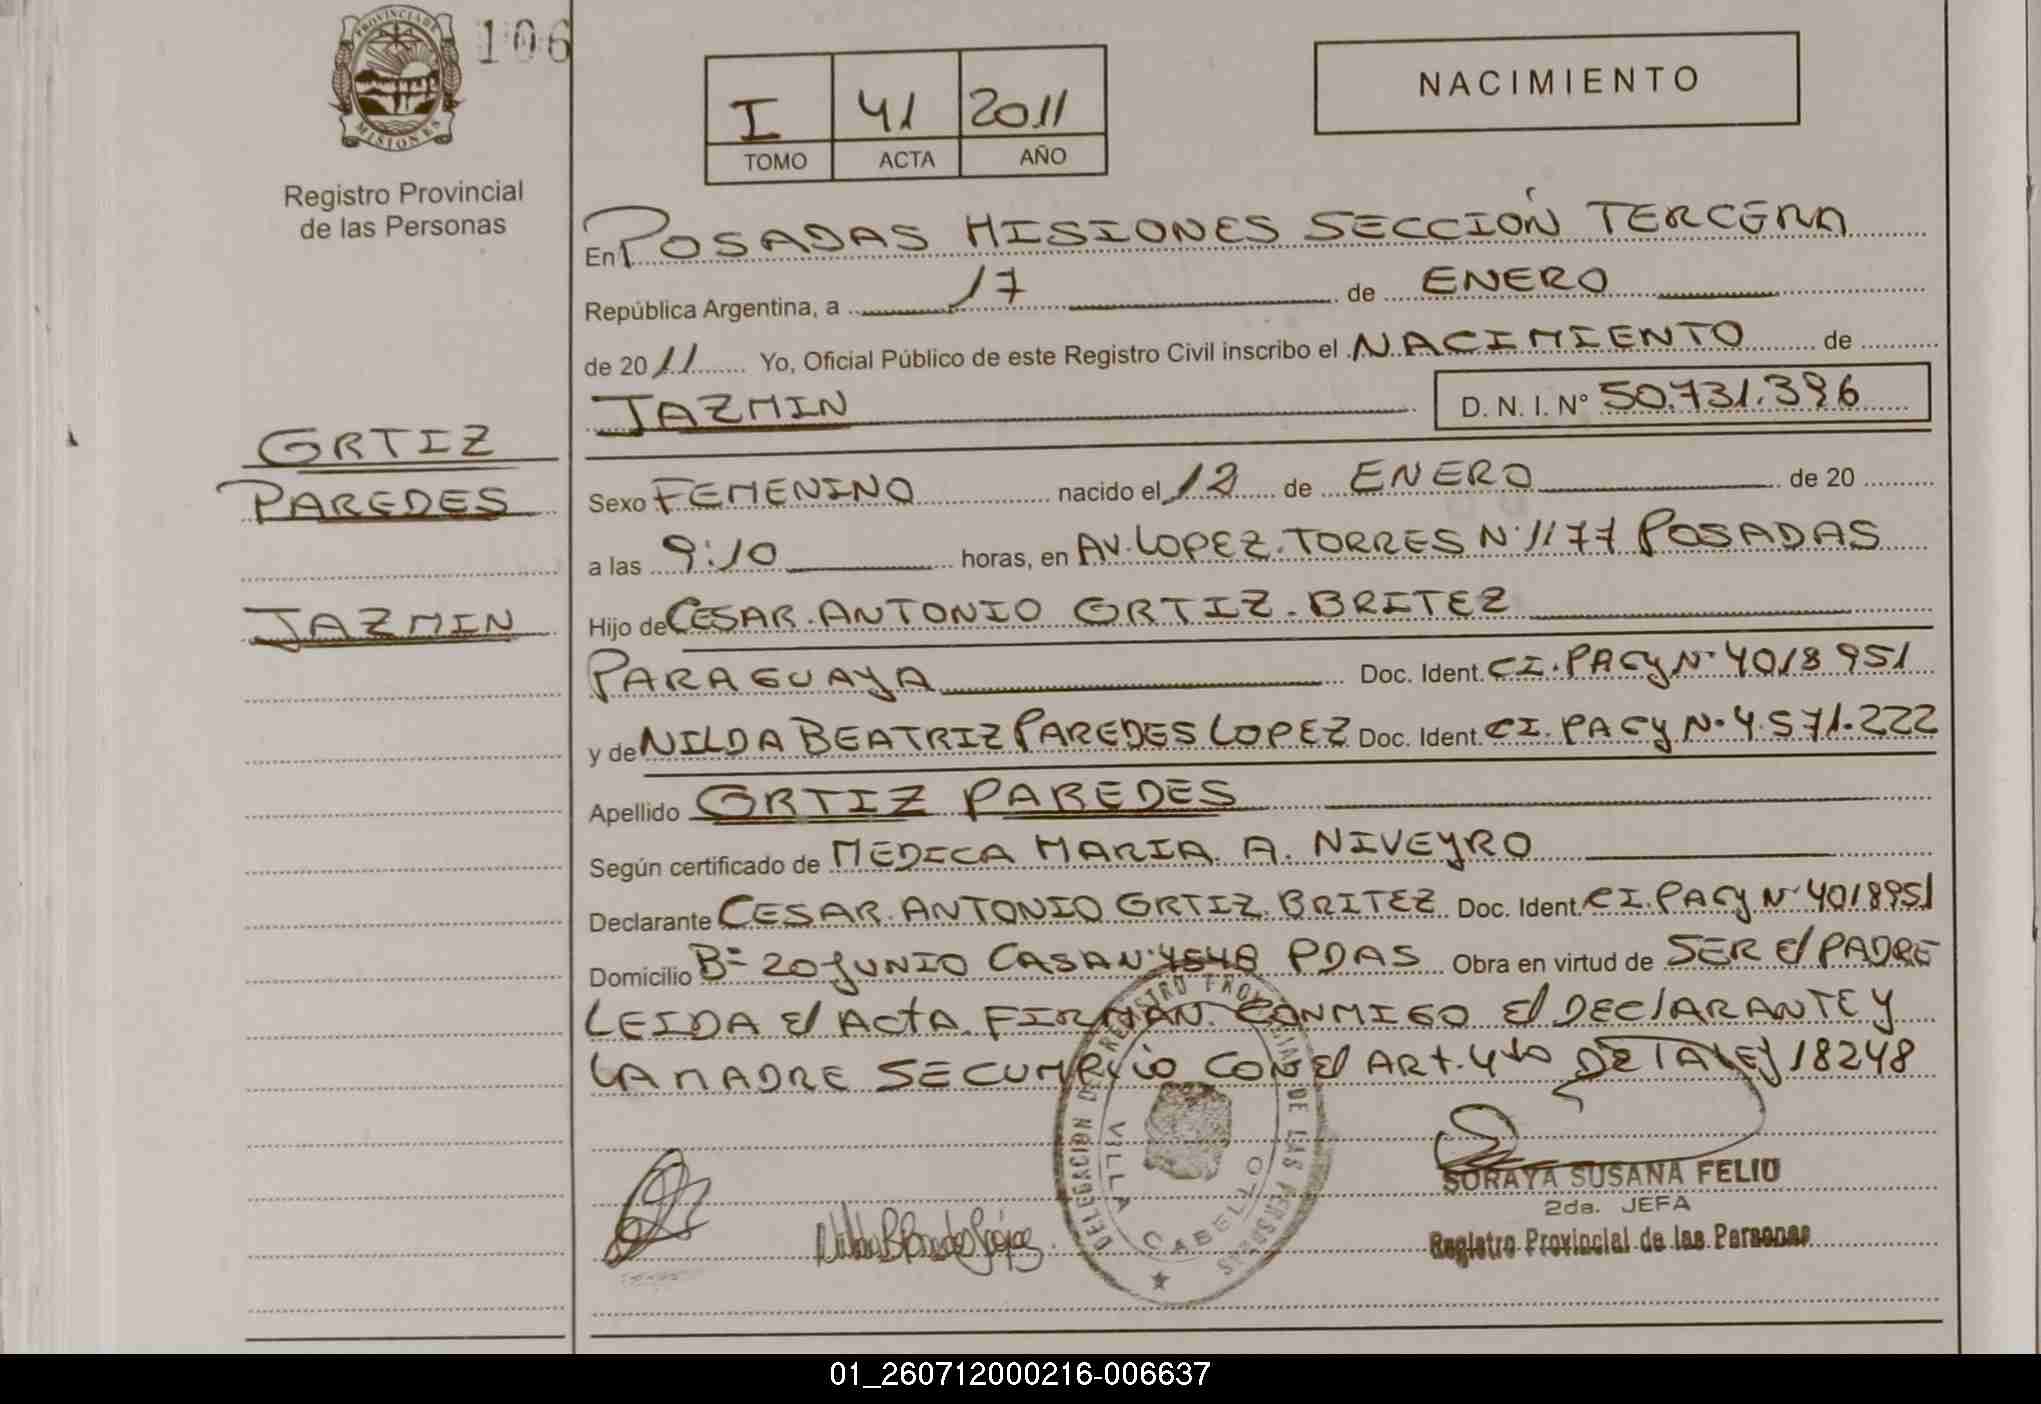 PROVINCIA DE
MISIONES
106
Registro Provincial
de las Personas
I 41 2011
TOMO ACTA AÑO
NACIMIENTO
En POSADAS MISIONES SECCIÓN TERCERA
República Argentina, a 17 de ENERO
de 2011 Yo, Oficial Público de este Registro Civil inscribo el NACIMIENTO de
JAZMIN D. N. I. N° 50.731.396
ORTIZ
PAREDES
JAZMIN
Sexo FEMENINO nacido el 12 de ENERO de 20
a las 9:10 horas, en AV. LOPEZ TORRES N° 1177 POSADAS
Hijo de CESAR ANTONIO ORTIZ BRITEZ
PARAGUAYA Doc. Ident. CI. PAGy N° 4018951
y de NILDA BEATRIZ PAREDES LOPEZ Doc. Ident. CI. PAGy N° 4.571.222
Apellido ORTIZ PAREDES
Según certificado de MEDICA MARIA A. NIVEYRO
Declarante CESAR ANTONIO ORTIZ BRITEZ Doc. Ident. CI. PAGy N° 4018951
Domicilio B= 20 JUNIO CASA N° 4548 PDAS Obra en virtud de SER El PADRE
LEIDA El ActA FIRMAN CONMIGO El DEClARANTE y
LA MADRE SE CUMPlió CON El ARt. 4to DE lA lEy 18248
DELEGACION DEL REGISTRO PROVINCIAL DE LAS PERSONAS
VILLA CABELLO
SORAYA SUSANA FELIU
2da. JEFA
Registro Provincial de las Personas
01_260712000216-006637